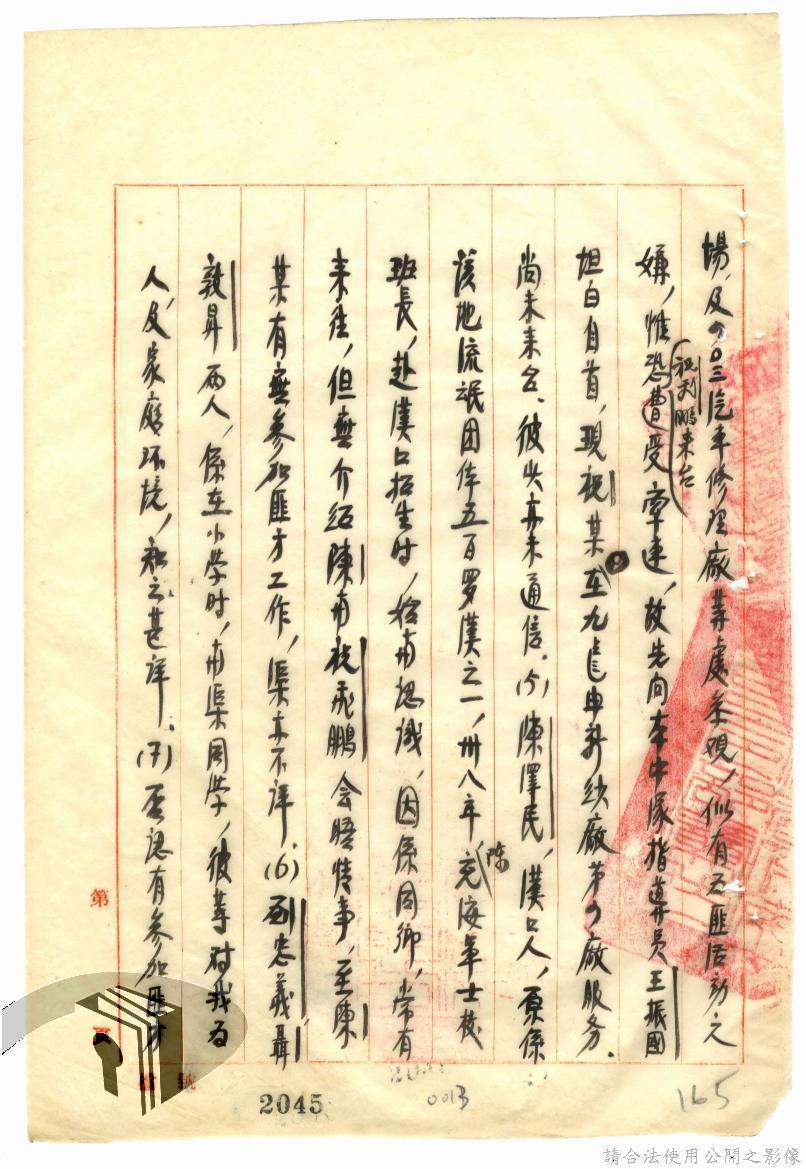 場，及四〇三汽車修理廠等處參觀，似有為匪活動之
嫌，惟恐（祝利鵬來台）曹受牽連，故先向本中隊指導員王振國
坦白自首，現祝某在九龍申新紗廠第四廠服务．
尚未來台．彼此亦未通信．(5)陳澤民，漢口人，原係
該地流氓团体五百罗漢之一，卅八年陳充海軍士校
班長，赴漢口招生时，始甫認識，因係同鄉，常有
來往，但無介紹陳甫祝飛鵬會晤情事，至陳
某有無參加匪方工作，渠亦不详．(6)劉忠義聶
敦昇两人，係在小學时，甫渠同學，彼等对我为
人，及家庭环境，知之甚详．(7)否認有參加匪方
第
頁
檔 號
2045
0013
165
請合法使用公開之影像